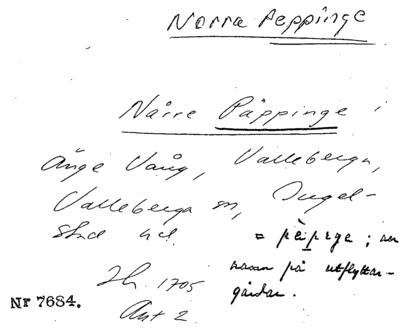 Norra Peppinge
Nårre Påppinge
Änge Vång, Valleberga,
Valleberga sn, Ingel-
stad hd.
= pèpinge; nu
namn på utflyttar-
gårdar.
Jb. 1705
Nr 7684.
Ant 2